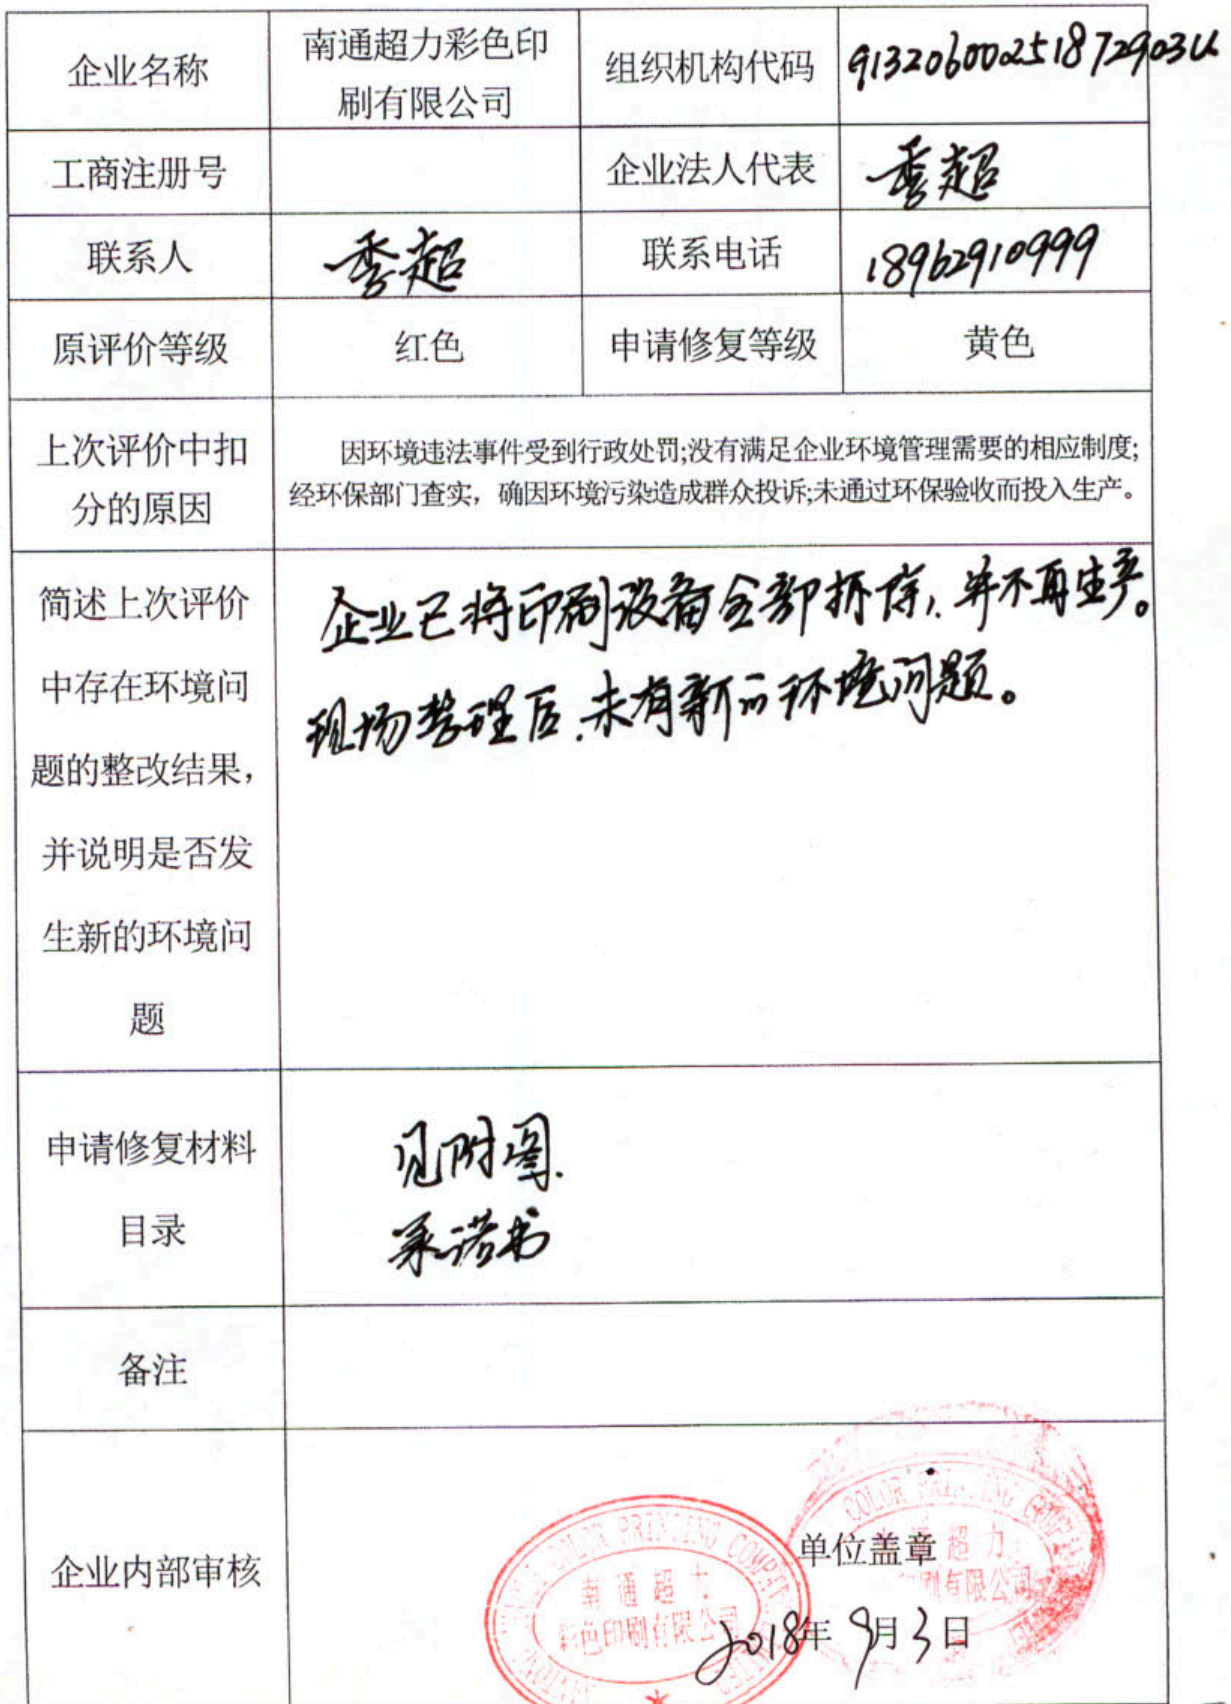 企业名称
南通超力彩色印
刷有限公司
组织机构代码
91320600251872903U
工商注册号
企业法人代表
季超
联系人
季超
联系电话
18962910999
原评价等级
红色
申请修复等级
黄色
上次评价中扣
分的原因
因环境违法事件受到行政处罚;没有满足企业环境管理需要的相应制度;
经环保部门查实，确因环境污染造成群众投诉;未通过环保验收而投入生产。
简述上次评价
中存在环境问
题的整改结果，
并说明是否发
生新的环境问
题
企业已将印刷设备全部拆除，并不再生产。
现场整理后，未有新的环境问题。
申请修复材料
目录
见附图.
承诺书
备注
企业内部审核
单位盖章
2018年 9月3日
COLOR PRINTING COMPANY
南通超力
彩色印刷有限公司
COLOR PRINTING COMPANY
通超力
印刷有限公司